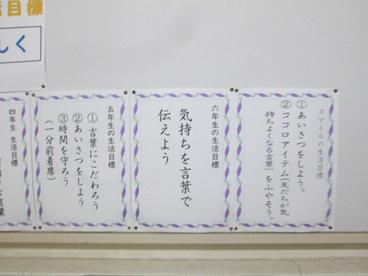 目標
しく
スマイルの生活目標
①あいさつをしよう。
②ココロアイテム（友だちが気
持ちよくなる言葉）をふやそう。
六年生の生活目標
気持ちを言葉で
伝えよう
五年生の生活目標
①言葉にこだわろう
②あいさつをしよう
③時間を守ろう
（一分前着席）
四年生 生活目標